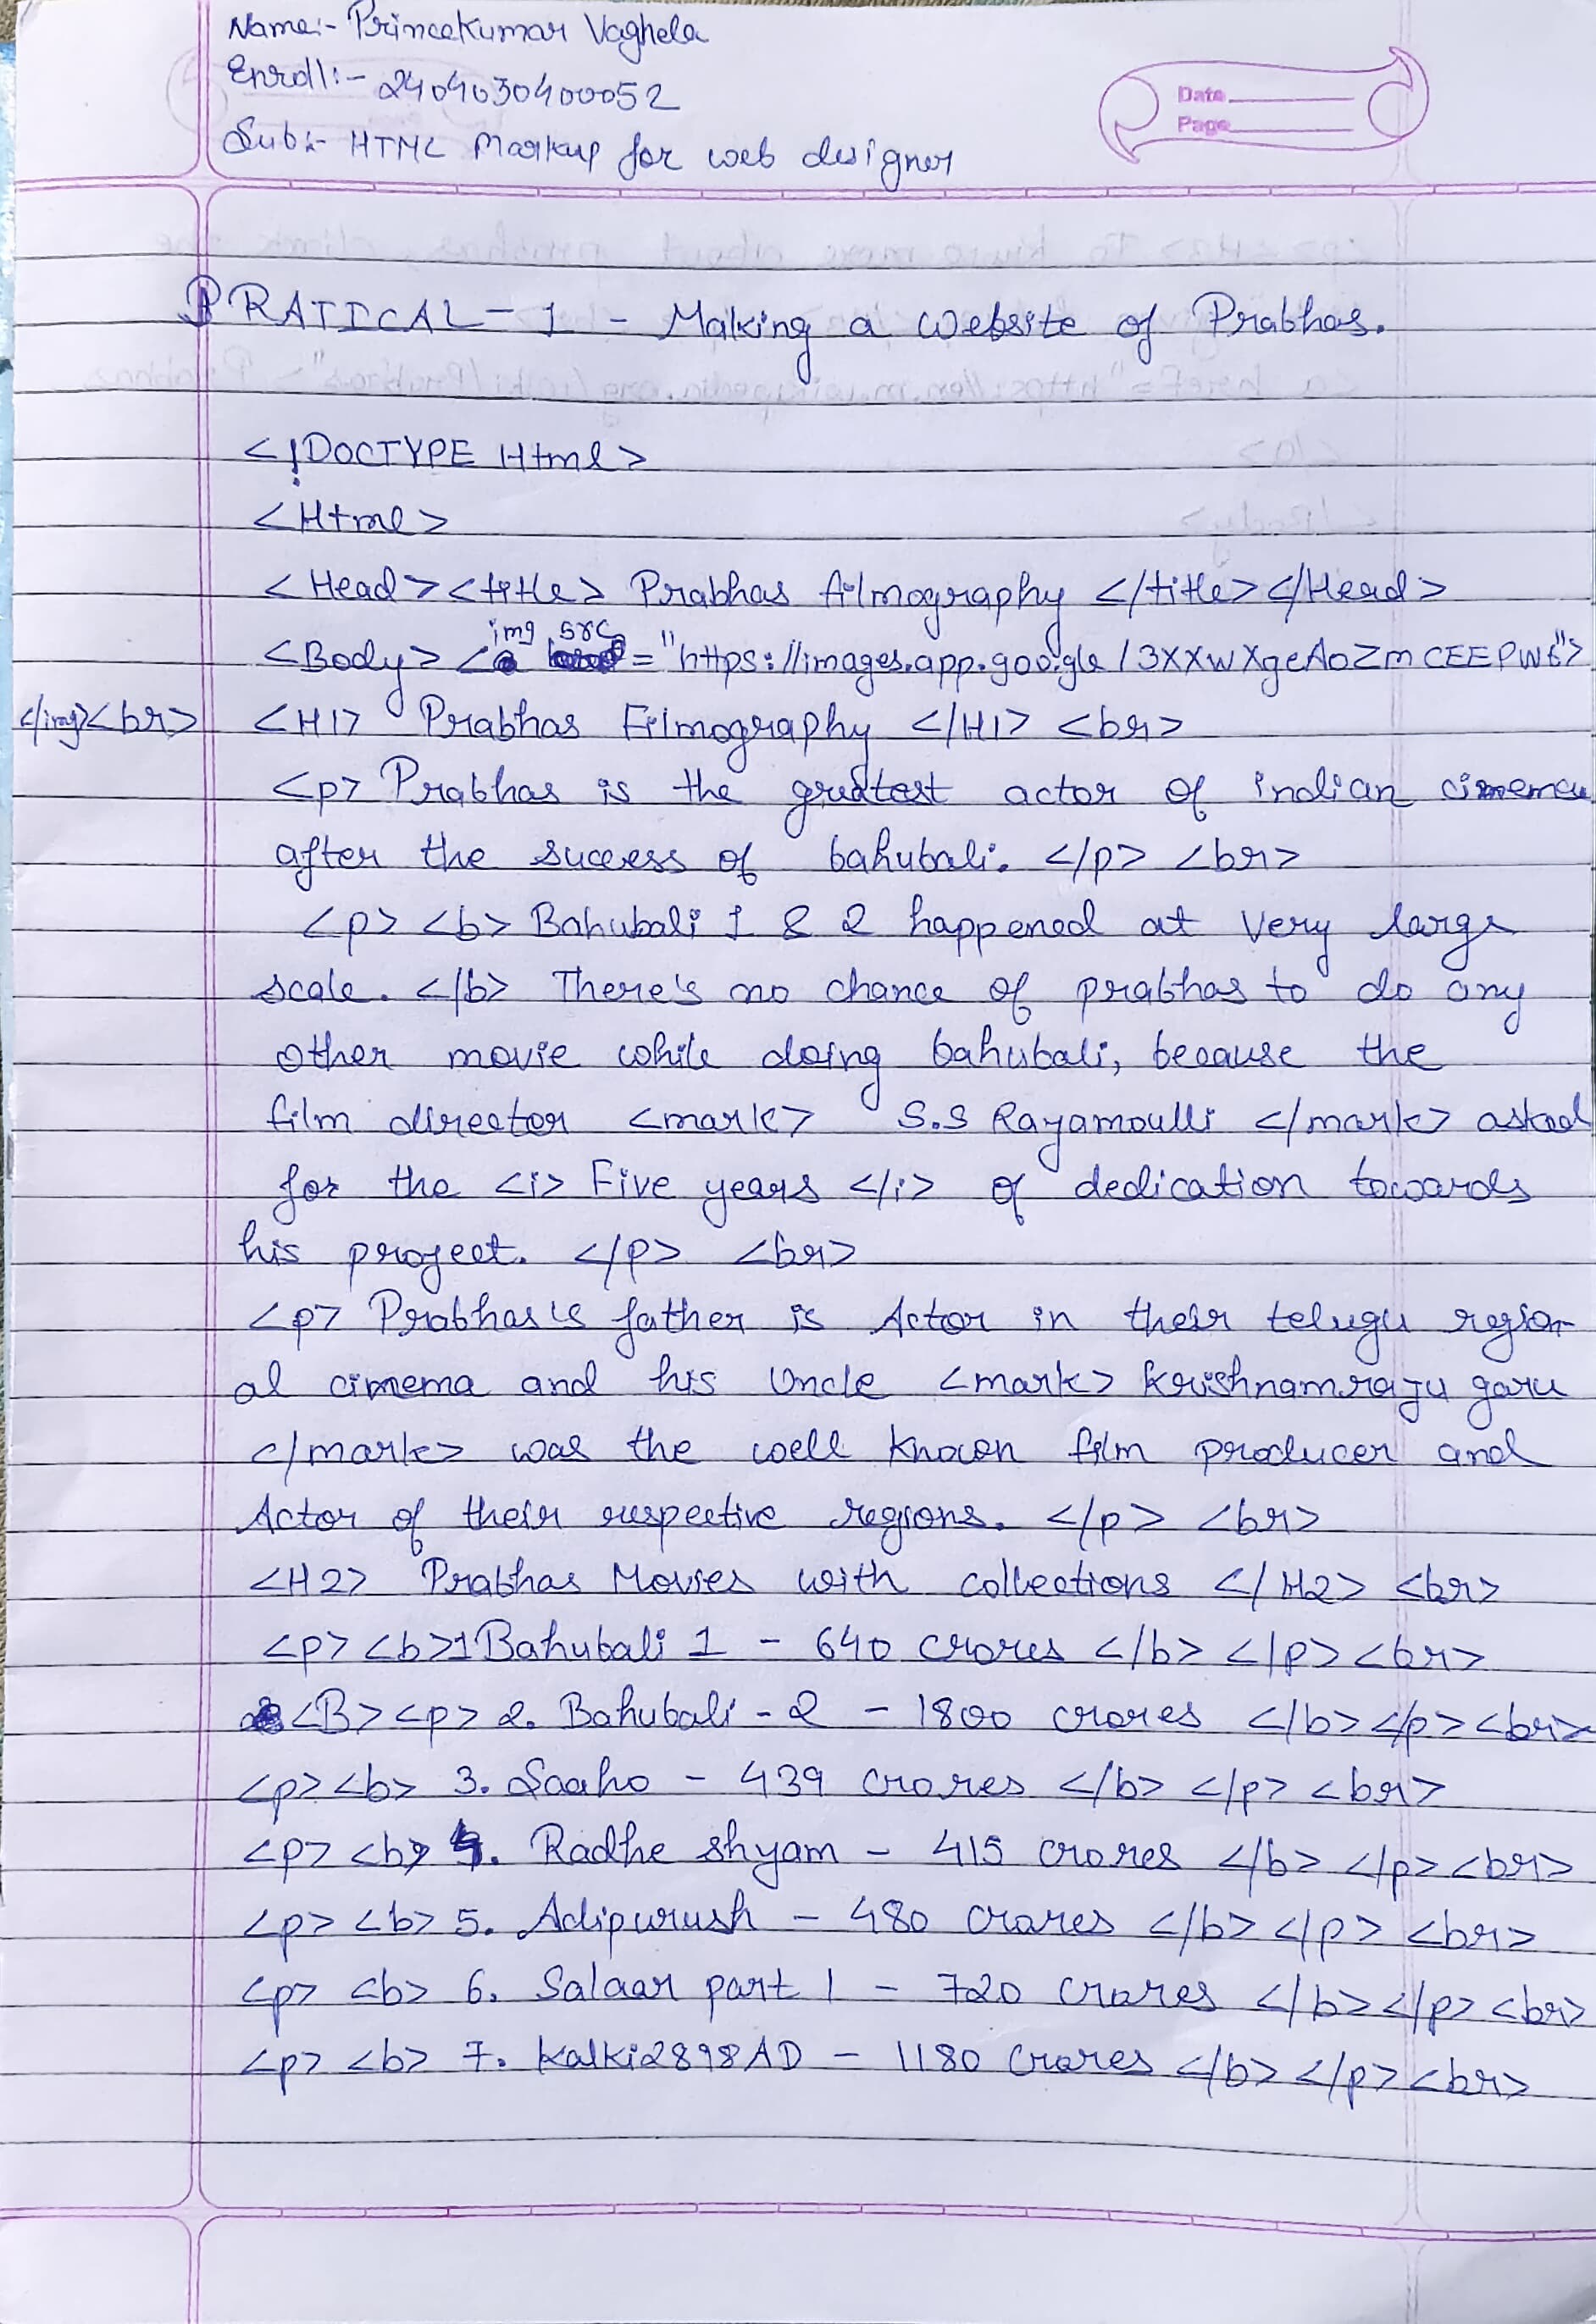 Name:- Princekumar Vaghela
Enroll:- 2404030400052
Sub:- HTML Markup for web designer
Date
Page
PRATICAL - 1 - Making a Website of Prabhas.
<!DOCTYPE Html>
<Html>
<Head><title> Prabhas filmography </title></Head>
<Body> <img src="https://images.app.goo.gle/3XXwXgeAoZmCEEPW6">
</img><br> <H1> Prabhas Filmography </H1> <br>
<p> Prabhas is the greatest actor of indian cinema
after the success of bahubali. </p> <br>
<p> <b> Bahubali 1 & 2 happened at Very large
scale. </b> There's no chance of prabhas to do any
other movie while doing bahubali, because the
film director <mark> S.S Rayamoulli </mark> asked
for the <i> Five years </i> of dedication towards
his project. </p> <br>
<p> Prabhas's father is Actor in their telugu region-
al cimema and his Uncle <mark> krishnamraju garu
</mark> was the well known film producer and
Actor of their respective regions. </p> <br>
<H2> Prabhas Movies with collections </H2> <br>
<p> <b>1 Bahubali 1 - 640 crores </b> </p> <br>
<B> <p> 2. Bahubali - 2 - 1800 crores </b> </p> <br>
<p> <b> 3. Saaho - 439 crores </b> </p> <br>
<p> <b> 4. Radhe shyam - 415 crores </b> </p> <br>
<p> <b> 5. Adipurush - 480 crares </b> </p> <br>
<p> <b> 6. Salaar part 1 - 720 crares </b> </p> <br>
<p> <b> 7. Kalki2898AD - 1180 Crares </b> </p> <br>